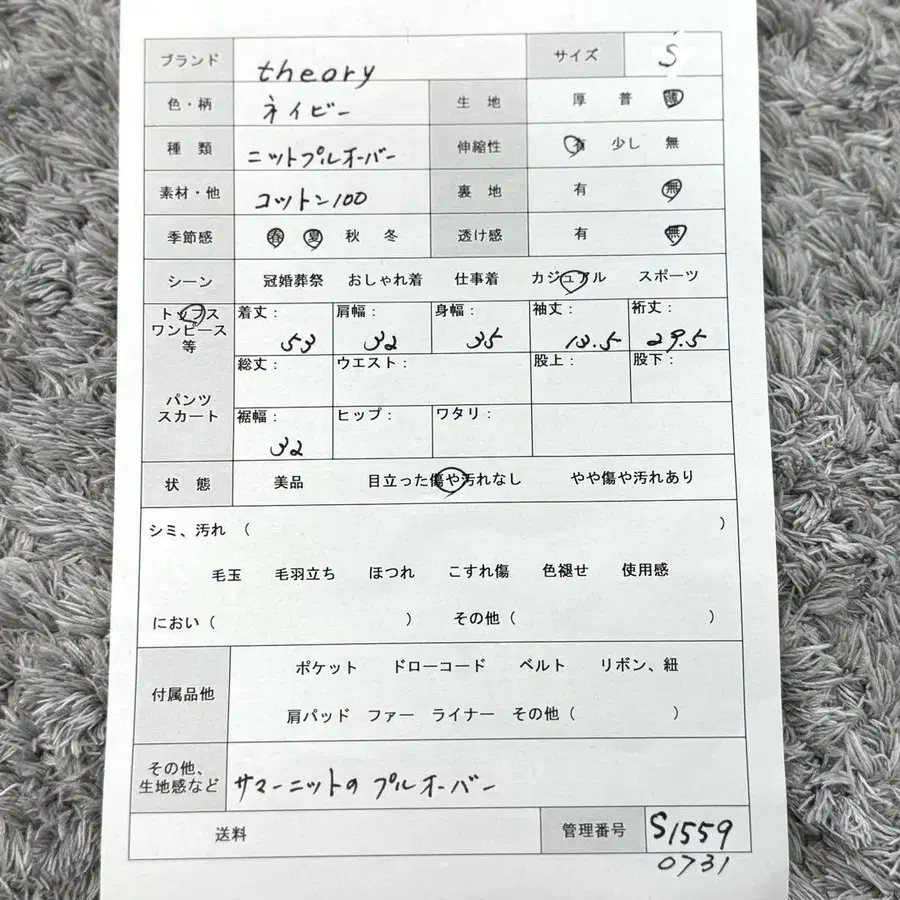 ブランド theory サイズ S
色・柄 ネイビー 生地 厚 普 薄
種類 ニットプルオーバー 伸縮性 有 少し 無
素材・他 コットン100 裏地 有 無
季節感 春 夏 秋 冬 透け感 有 無
シーン 冠婚葬祭 おしゃれ着 仕事着 カジュアル スポーツ
トップス
ワンピース
等
着丈: 53 肩幅: 32 身幅: 35 袖丈: 13.5 裄丈: 29.5
パンツ
スカート
総丈: ウエスト: 股上: 股下:
裾幅: 32 ヒップ: ワタリ:
状態 美品 目立った傷や汚れなし やや傷や汚れあり
シミ、汚れ ( )
毛玉 毛羽立ち ほつれ こすれ傷 色褪せ 使用感
におい ( ) その他 ( )
付属品他
ポケット ドローコード ベルト リボン、紐
肩パッド ファー ライナー その他 ( )
その他、
生地感など
サマーニットの プルオーバー
送料 管理番号 S1559
0731